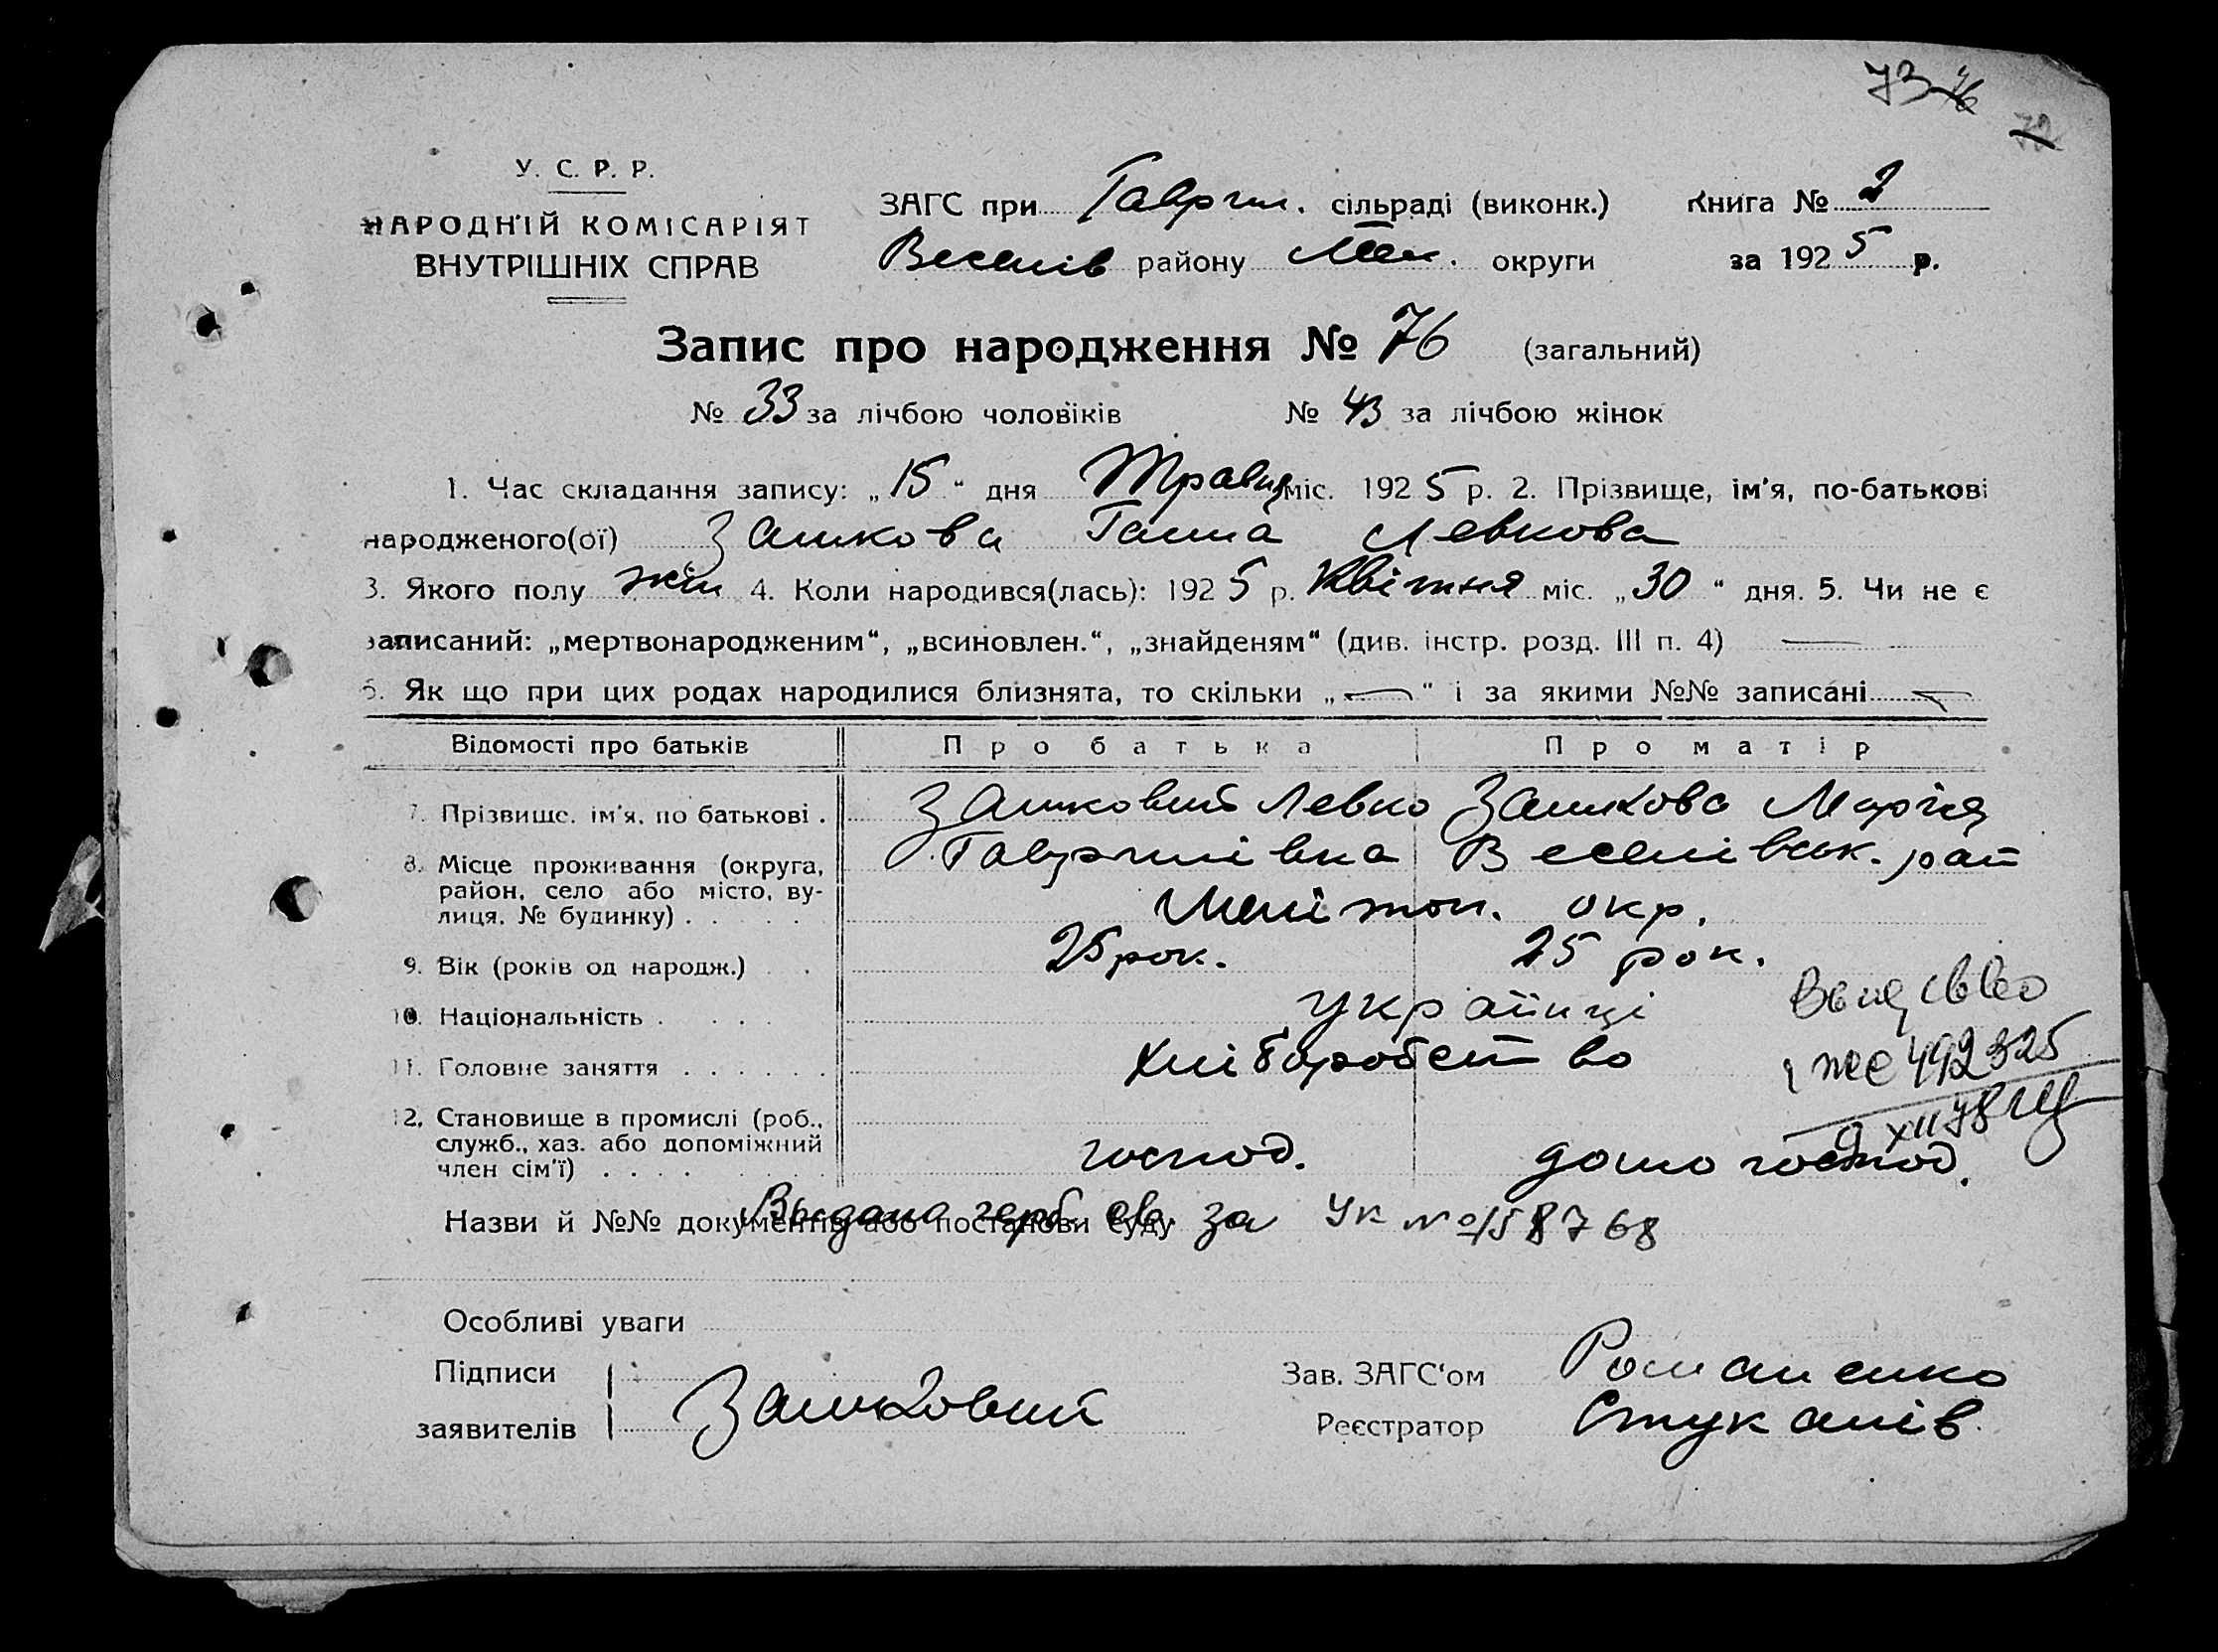 73 76
72
У. С. Р. Р.
НАРОДНІЙ КОМІСАРІЯТ
ВНУТРІШНІХ СПРАВ
ЗАГС при Гаврил. сільраді (виконк.) Книга № 2
Веселів району Мел. округи за 1925 р.
Запис про народження № 76 (загальний)
№ 33 за лічбою чоловіків № 43 за лічбою жінок
1. Час складання запису: „15“ дня Травня міс. 1925 р. 2. Прізвище, ім'я, по-батькові
народженого(ої) Зашкова Ганна Левкова
3. Якого полу жін 4. Коли народився(лась): 1925 р. Квітня міс. „30“ дня. 5. Чи не є
записаний: „мертвонародженим“, „всиновлен.“, „знайденям“ (див. інстр. розд. III п. 4) —
6. Як що при цих родах народилися близнята, то скільки „—“ і за якими №№ записані —
Відомості про батьків Про батька Про матір
7. Прізвище, ім'я, по батькові . Зашковий Левко Зашкова Марія
8. Місце проживання (округа, Гаврилівка Веселівськ. рай
район, село або місто, ву-
лиця, № будинку) . . Мелітоп. окр.
9. Вік (років од народж.) . . 25 рок. 25 рок.
10. Національність . . . . Українці
11. Головне заняття . . . . . . Хліборобство
12. Становище в промислі (роб.,
служб., хаз. або допоміжний
член сім'ї) . . . . господ. домогоспод.
492325
Назви й №№ документів або постанови суду Выдано герб. св. за УК № 158768
Особливі уваги
Підписи Зав. ЗАГС'ом Романенко
заявителів Зашковий Реєстратор Стукалів